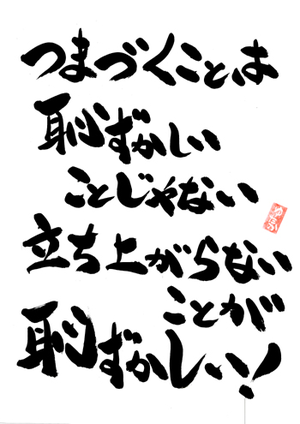 つまづくことは
恥ずかしい
ことじゃない
立ち上がらない
ことが
恥ずかしい!